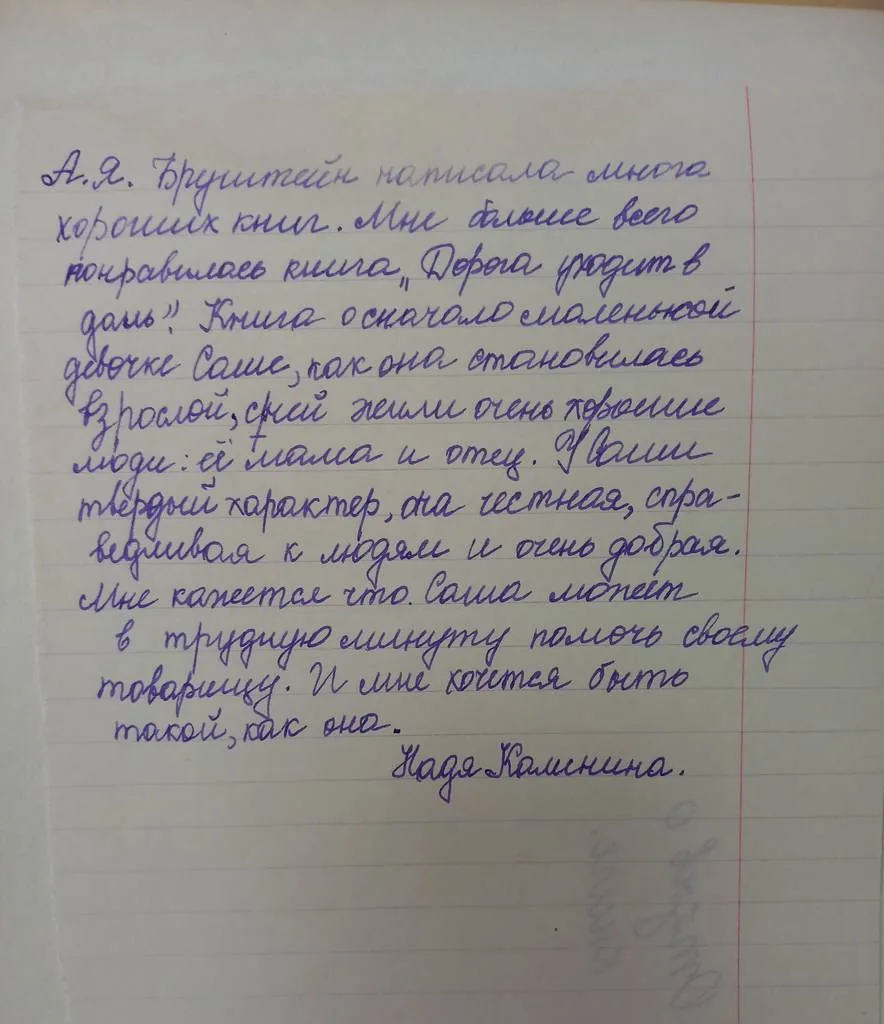 А.Я. Бруштейн написала много
хороших книг. Мне больше всего
понравилась книга „Дорога уходит в
даль”. Книга о сначала маленькой
девочке Саше, как она становилась
взрослой, с ней жили очень хорошие
люди: её мама и отец. У Саши
твёрдый характер, она честная, спра-
ведливая к людям и очень добрая.
Мне кажется что Саша может
в трудную минуту помочь своему
товарищу. И мне хочется быть
такой, как она.
Надя Калинина.